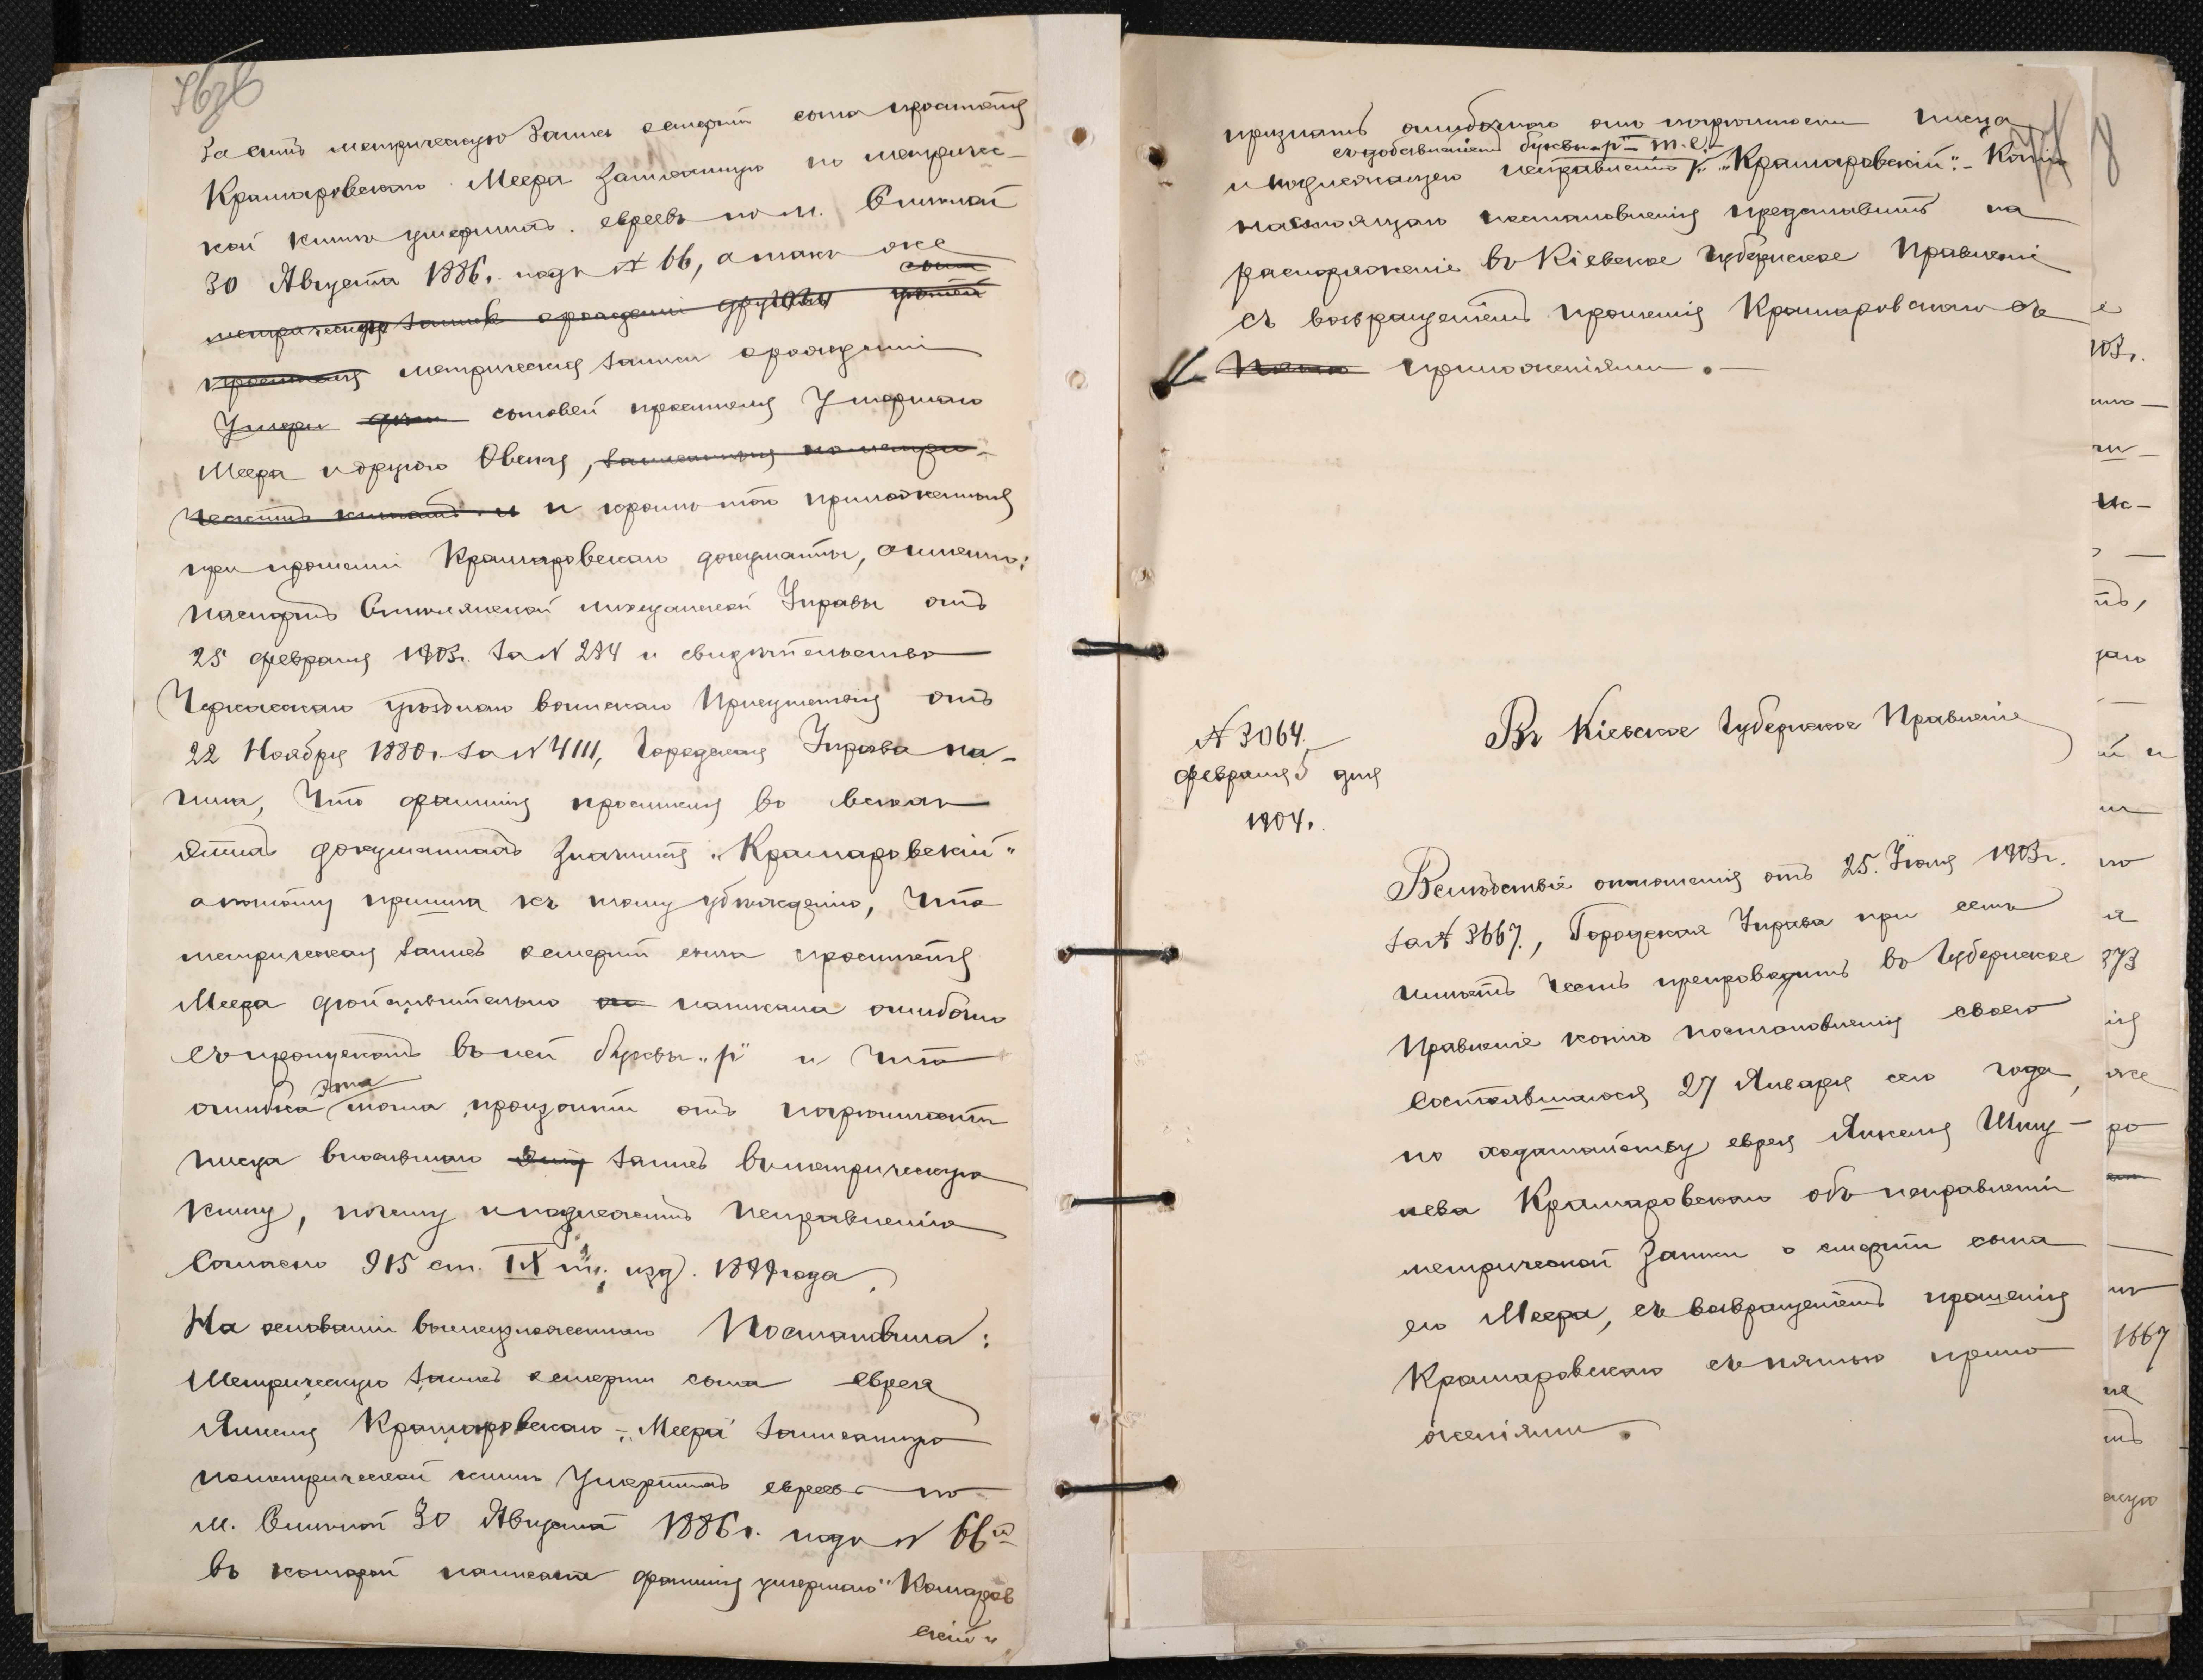 метрическую запись о смерти сына просителя
Крамаровскаго Меера записанную по метричес-
кой книге умершихъ евреевъ по м. Смелой
30 Августа 1886 г. подъ № 66, а также
метрическую запись о рождении другого сына
просителя метрическия записи о рождении
Умерш сыновей просителя Умершаго
Меера и другого Овсея, записанныя по метри-
ческимъ книгамъ и и кроме того приложенныя
при прошении Крамаровскаго документы, а именно:
паспортъ Смелянской мещанской Управы отъ
25 февраля 1903 г. за № 284 и свидѣтельство
Черкасскаго уѣзднаго воинскаго Присутствія отъ
22 Ноября 1880 г. за № 4111, Городская Управа на-
шла, что фамилія просителя во всехъ
этихъ документахъ значится „Крамаровскій"
а потому пришла къ тому убѣжденію, что
метрическая запись о смерти сына просителя
Меера дѣйствительно написана ошибочно
съ пропускомъ въ ней буквы „р" и что
ошибка эта могла произойти отъ
писца вносившаго запись въ метрическую
книгу, почему и подлежитъ исправленію
Согласно 915 ст. IX т. изд. 1899 года.
На основаніи вышеизложеннаго Постановила:
Метрическую запись о смерти сына еврея
Янкеля Крамаровскаго - „Меера" записанную
по метрической книге Умершихъ евреевъ по
м. Смелой 30 Августа 1886 г. подъ № 66й
въ которой написана фамилія умершаго „Комаров
скій",
признать ошибочною писца
съ добавленіемъ буквы „р" т.е.
и подлежащею исправленію „Крамаровскій". - Копію
настоящаго постановленія представить на
распоряженіе въ Кіевское Губернское Правленіе
съ возвращеніемъ прошенія Крамаровскаго съ
приложеніями. -
№ 3064
февраля 5 дня
1904 г.
Въ Кіевское Губернское Правленіе
Вслѣдствіе отношенія отъ 25 Іюля 1903 г.
за № 3667, Городская Управа при семъ
имѣетъ честь препроводить въ Губернское
Правленіе копію постановленія своего
состоявшагося 27 Января сего года,
по ходатайству еврея Янкеля Шму-
лева Крамаровскаго объ исправленіи
метрической записи о смерти сына
его Меера, съ возвращеніемъ прошенія
Крамаровскаго съ пятью прило
женіями.
373
1667